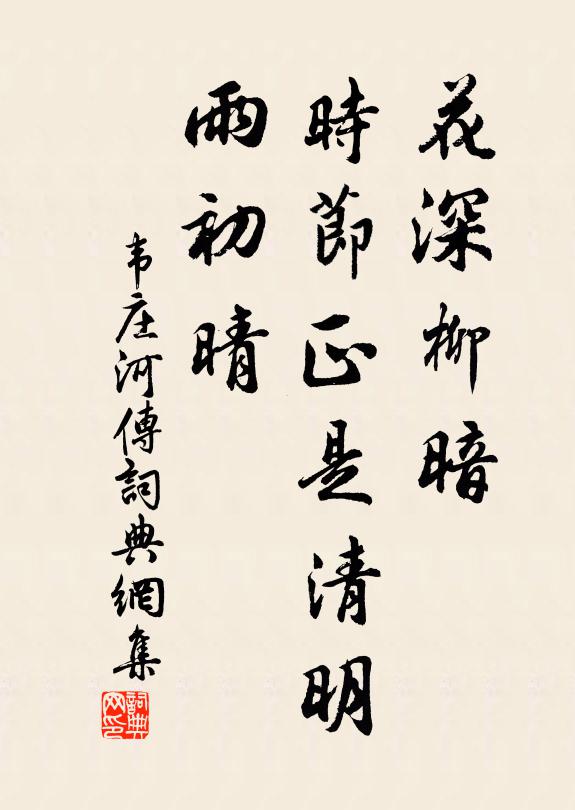 花深柳暗
時節正是清明
雨初晴
韦庄河傳詞典網集
詞典网印